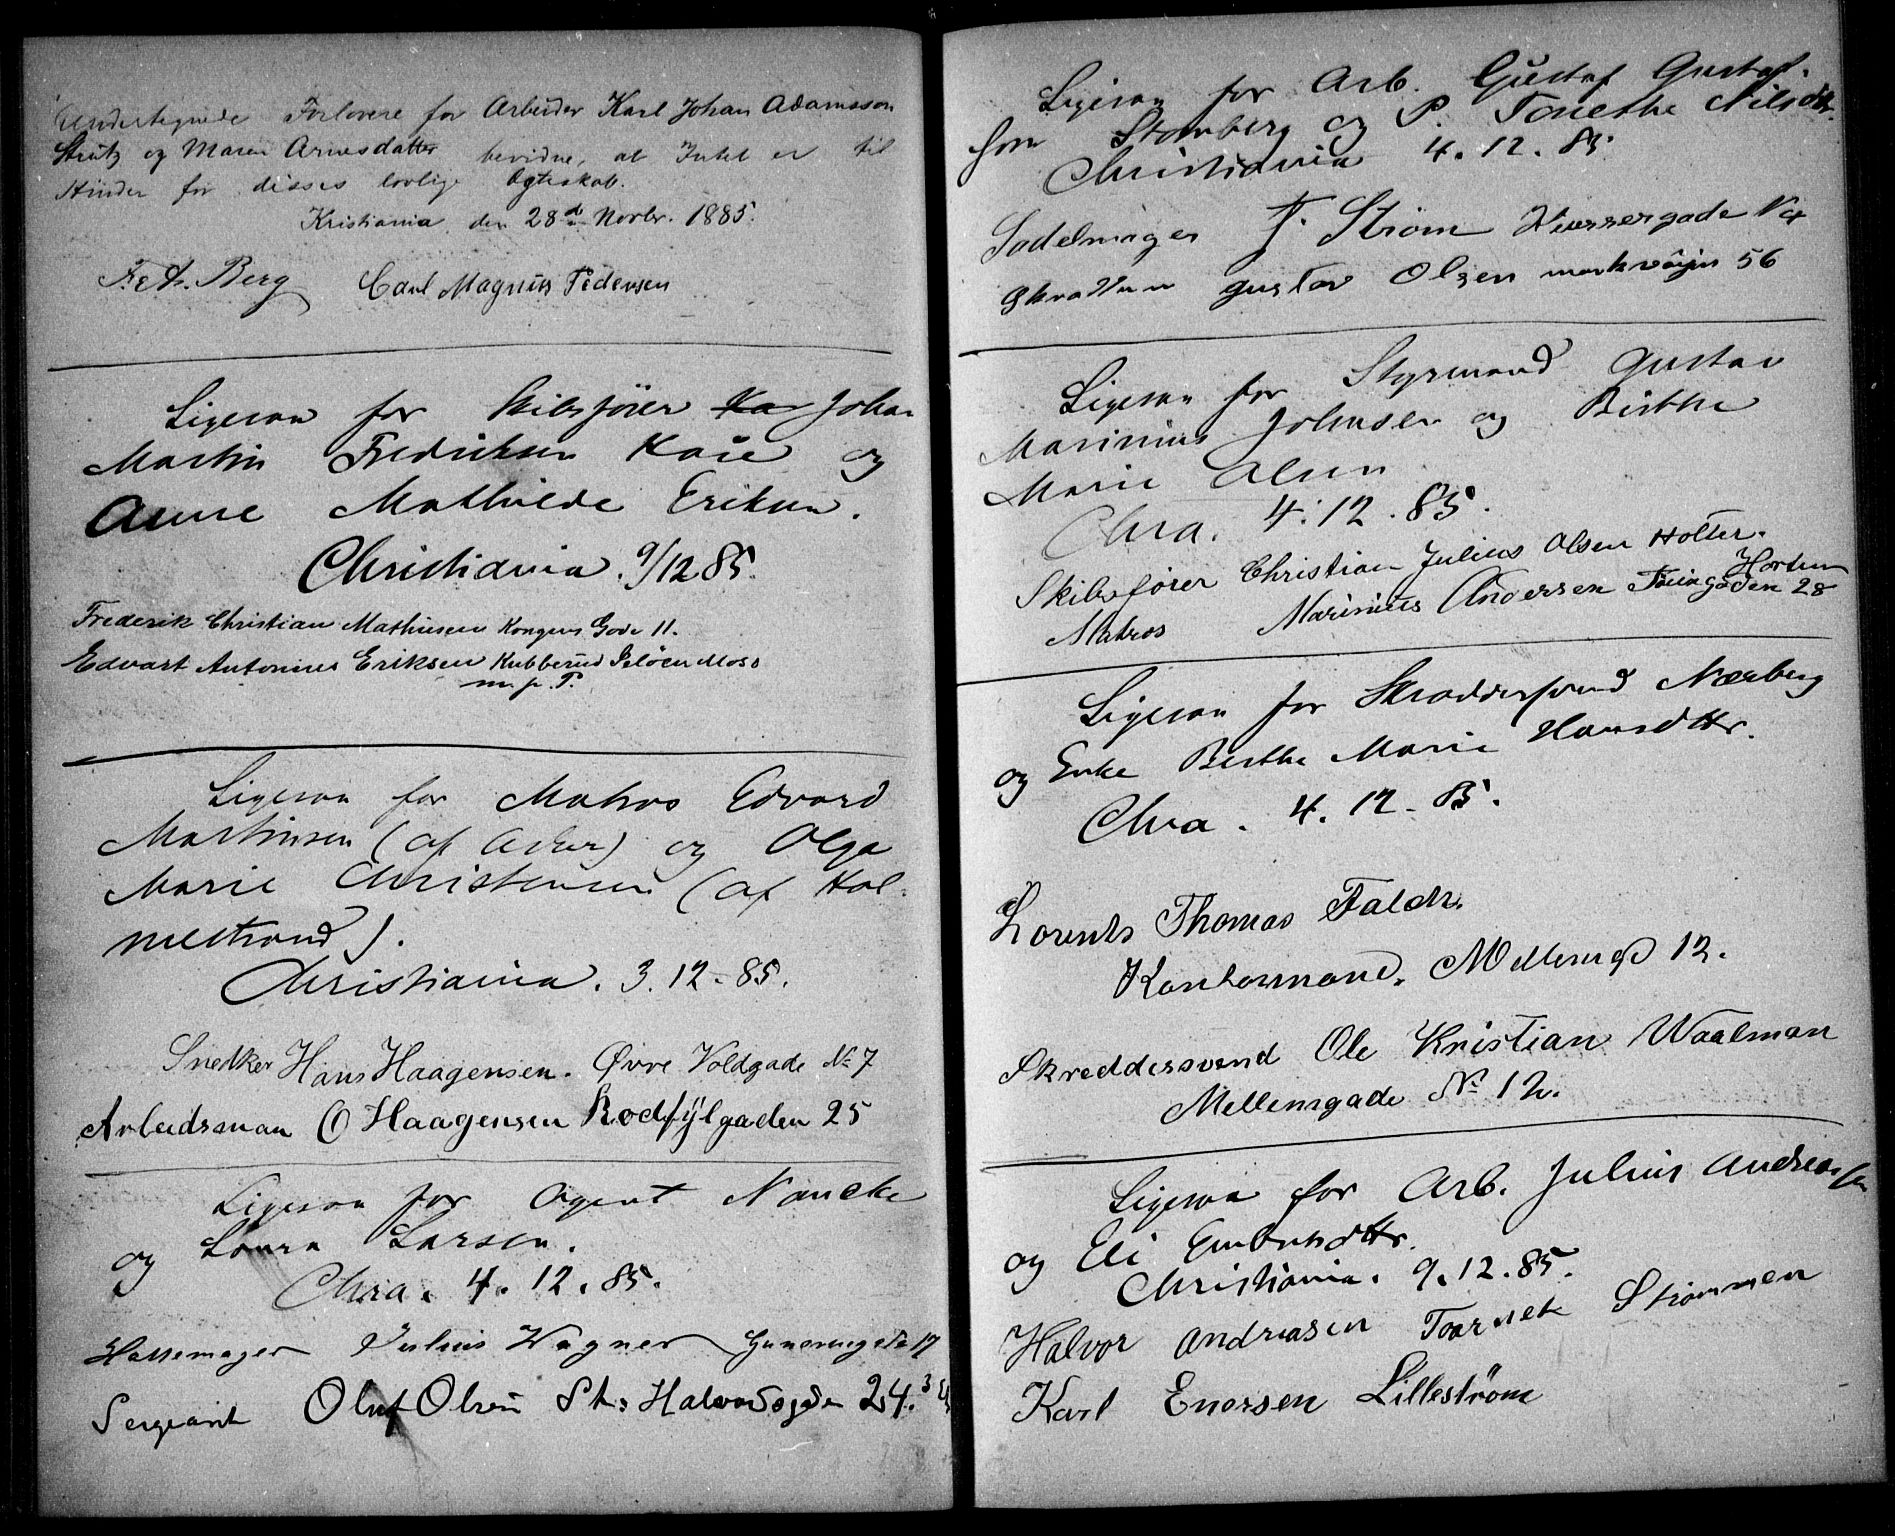 Undertegnede Forlovere for Arbeider Karl Johan Adamsson
Strutz og Maren Arnesdatter bevidne, at Intet er til
Hinder for disses lovlige Ægteskab.
Kristiania den 28de Novbr. 1885.
Berg Carl Magnus Pedersen
Ligesaa for Skibsfører Johan
Martin Fredriksen Kaae og
Anne Mathilde Eriksen.
Christiania. 9/12 85.
Frederik Christian Mathiesen Kongens Gade 11.
Edvart Antonius Eriksen Kubberud Jeløen Moss
m. p. P.
Ligesaa for Matros Edvard
Martinsen (af Asker) og Olga
Marie Christensen (af Hol-
mestrand).
Christiania. 3. 12. 85.
Snedker Hans Haagensen. Øvre Voldgade No 7
Arbeidsman O Haagensen Rodfylgaden 25
Ligesaa for Agent Nancke
og Laura Larsen.
Chra. 4. 12. 85.
Julius Wagner 17
Sergeant Oluf Olsen St. Halvardsgade 24.
Ligesaa for Arb. Gustaf Gustaf-
son Stenberg og P. Tonethe Nilsdtr.
Christiania 4. 12. 85.
Sadelmager F. Strøm No 4
Gustav Olsen markveien 56
Ligesaa for Styrmand Gustav
Marinius Johnsen og Birthe
Marie Olsen
Chra. 4. 12. 85.
Skibsfører Christian Julius Olsen Holter.
Horten
Matros Marinius Andersen Tøiengaden 28
Ligesaa for Skræddersvend Nærberg
og Enke Berthe Marie Hansdtr.
Chra. 4. 12. 85.
Lorents Thomas Faldt.
Kontormand. Møllergd 12.
Skreddersvend Ole Kristian Waalman
Mellemgade No 12.
Ligesaa for Arb. Julius Andreassen
og Eli Embretsdtr.
Christiania. 9. 12. 85.
Halvor Andreasen Strømmen
Karl Enersen Lillestrøm